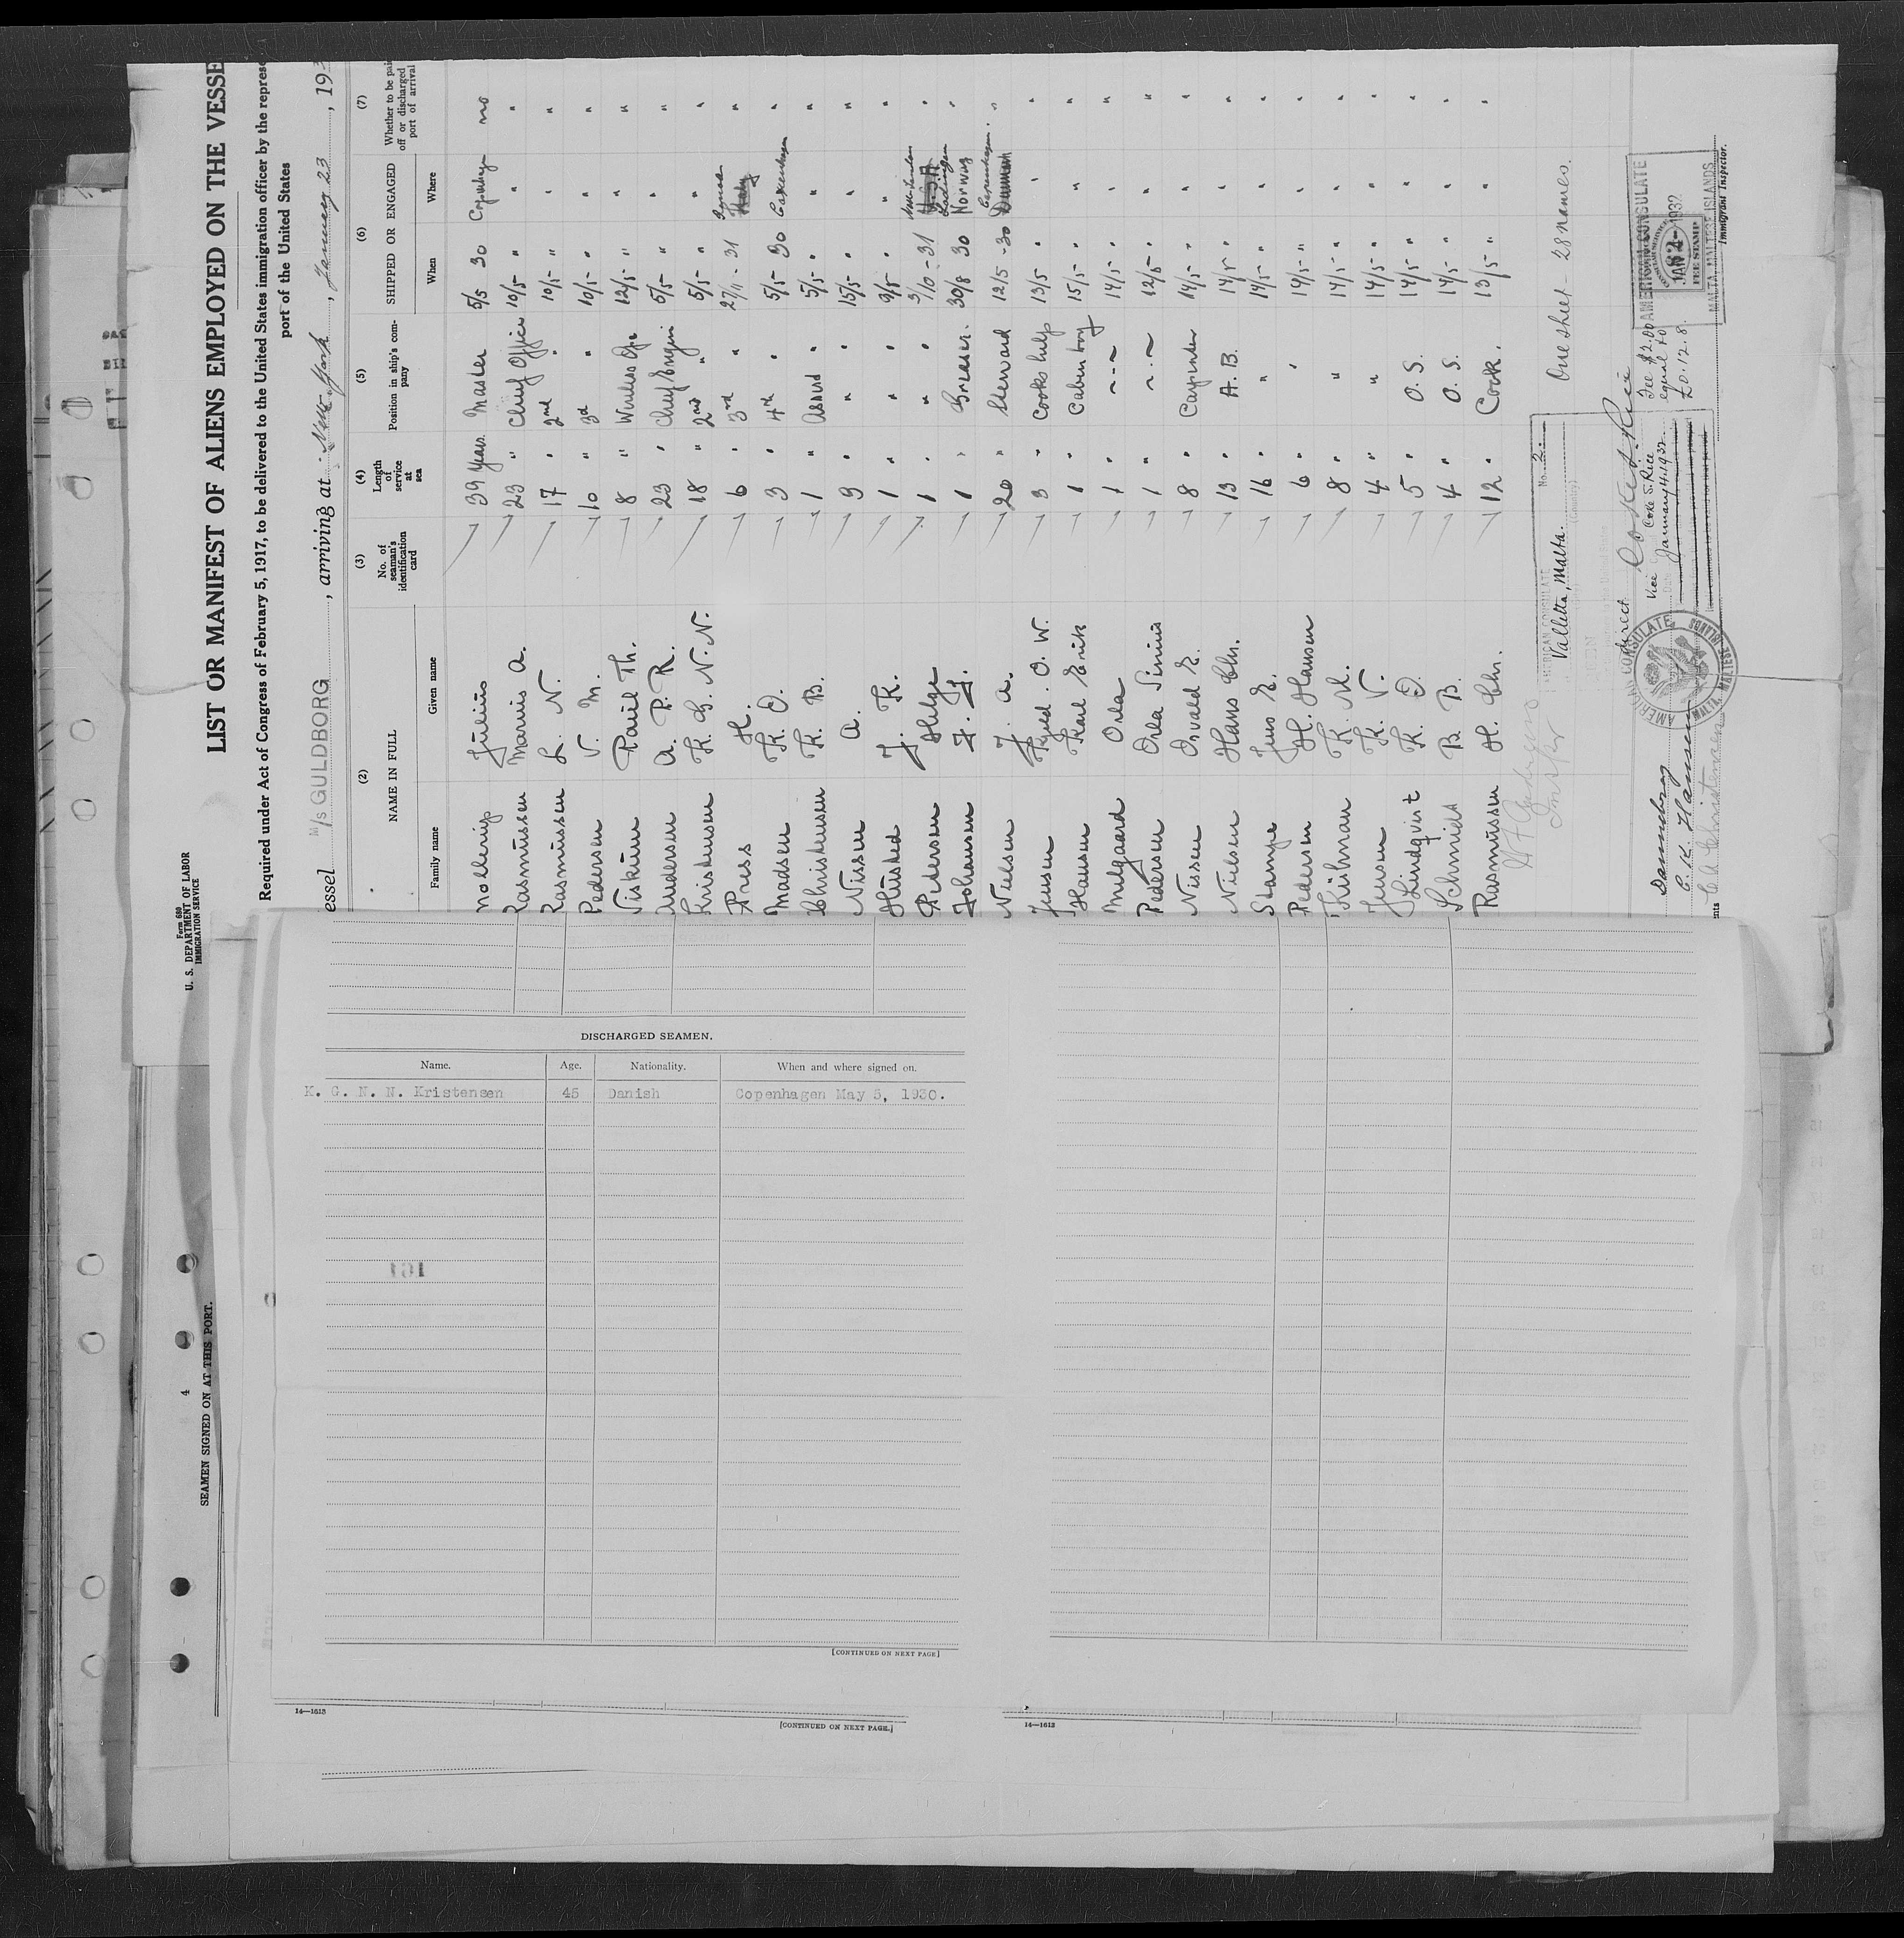 Form 680
U. S. DEPARTMENT OF LABOR
IMMIGRATION SERVICE
LIST OR MANIFEST OF ALIENS EMPLOYED ON THE VESSE
Required under Act of Congress of February 5, 1917, to be delivered to the United States immigration officer by the represe
port of the United States
essel M/S GULDBORG, arriving at New York, January 23, 193
(2) (3) (4) (5) (6) (7)
NAME IN FULL No. of seaman's identification card Length of service at sea Position in ship's company SHIPPED OR ENGAGED Whether to be paid off or discharged port of arrival
Family name Given name When Where
Møllerup Julius 39 Years Master 5/5 30 Copenhagen no
Rasmussen Marius A. 23 " Chief Officer 10/5 " " "
Rasmussen L. N. 17 " 2nd " 10/5 " " "
Pedersen V. M. 10 " 3d " 10/5 " " "
Paul Th. 8 " Wireless Opr 12/5 " " "
Andersen A. P. R. 23 " Chief Engin 5/5 " " "
Kristensen K. G. N. N. 18 " 2nd " 5/5 " " "
Press H. 6 " 3rd " 27/11 - 31 Italy "
Madsen K. O. 3 " 4th " 5/5 30 Copenhagen "
Christensen K. B. 1 " Assist " 5/5 " " "
Nissen A. 9 " " " 15/5 " " "
Husted J. K. 1 " " " 9/5 " " "
Pedersen Helge 1 " " " 3/10 - 31 U.S.A. "
Johansen J. J. 1 " Greaser. 30/8 30 Norway "
Nielsen J. A. 20 " Steward 12/5 - 30 Copenhagen. Denmark "
Jensen Kjeld. O. W. 3 " Cooks help 13/5 " " "
Hansen Karl Erik 1 " Cabin boy 15/5 " " "
Mulgaard Orla 1 " " 14/5 " " "
Pedersen Orla Sinius 1 " " 12/5 " " "
Nissen Osvald E. 8 " Carpenter 14/5 " " "
Nielsen Hans Chr. 13 " A. B. 14/5 " " "
Stampe Jens E. 16 " " 14/5 " " "
Pedersen H. Hansen 6 " " 14/5 " " "
K. M. 8 " " 14/5 " " "
Jensen K. V. 4 " " 14/5 " " "
Lindqvist K. O. 5 " O. S. 14/5 " " "
Schmidt B. B. 4 " O. S. 14/5 " " "
Rasmussen H. Chr. 12 " Cook. 13/5 " " "
One sheet - 28 names.
AMERICAN CONSULATE No. 2.
Valletta, Malta.
(Country)
Direct
Coke S. Rice
Vice Coke S. Rice
January 4, 1932
Fee $2.00
equal to
£0. 12. 8.
AMERICAN CONSULATE
JAN 2 - 1932
FEE STAMP
MALTA, MALTESE ISLANDS
Immigrant Inspector.
Dannebrog
C. K. Hansen
C. A. Christensen
4
SEAMEN SIGNED ON AT THIS PORT.
DISCHARGED SEAMEN.
Name. Age. Nationality. When and where signed on.
K. G. N. N. Kristensen 45 Danish Copenhagen May 5, 1930.
[CONTINUED ON NEXT PAGE]
14—1613
[CONTINUED ON NEXT PAGE.]
14—1613